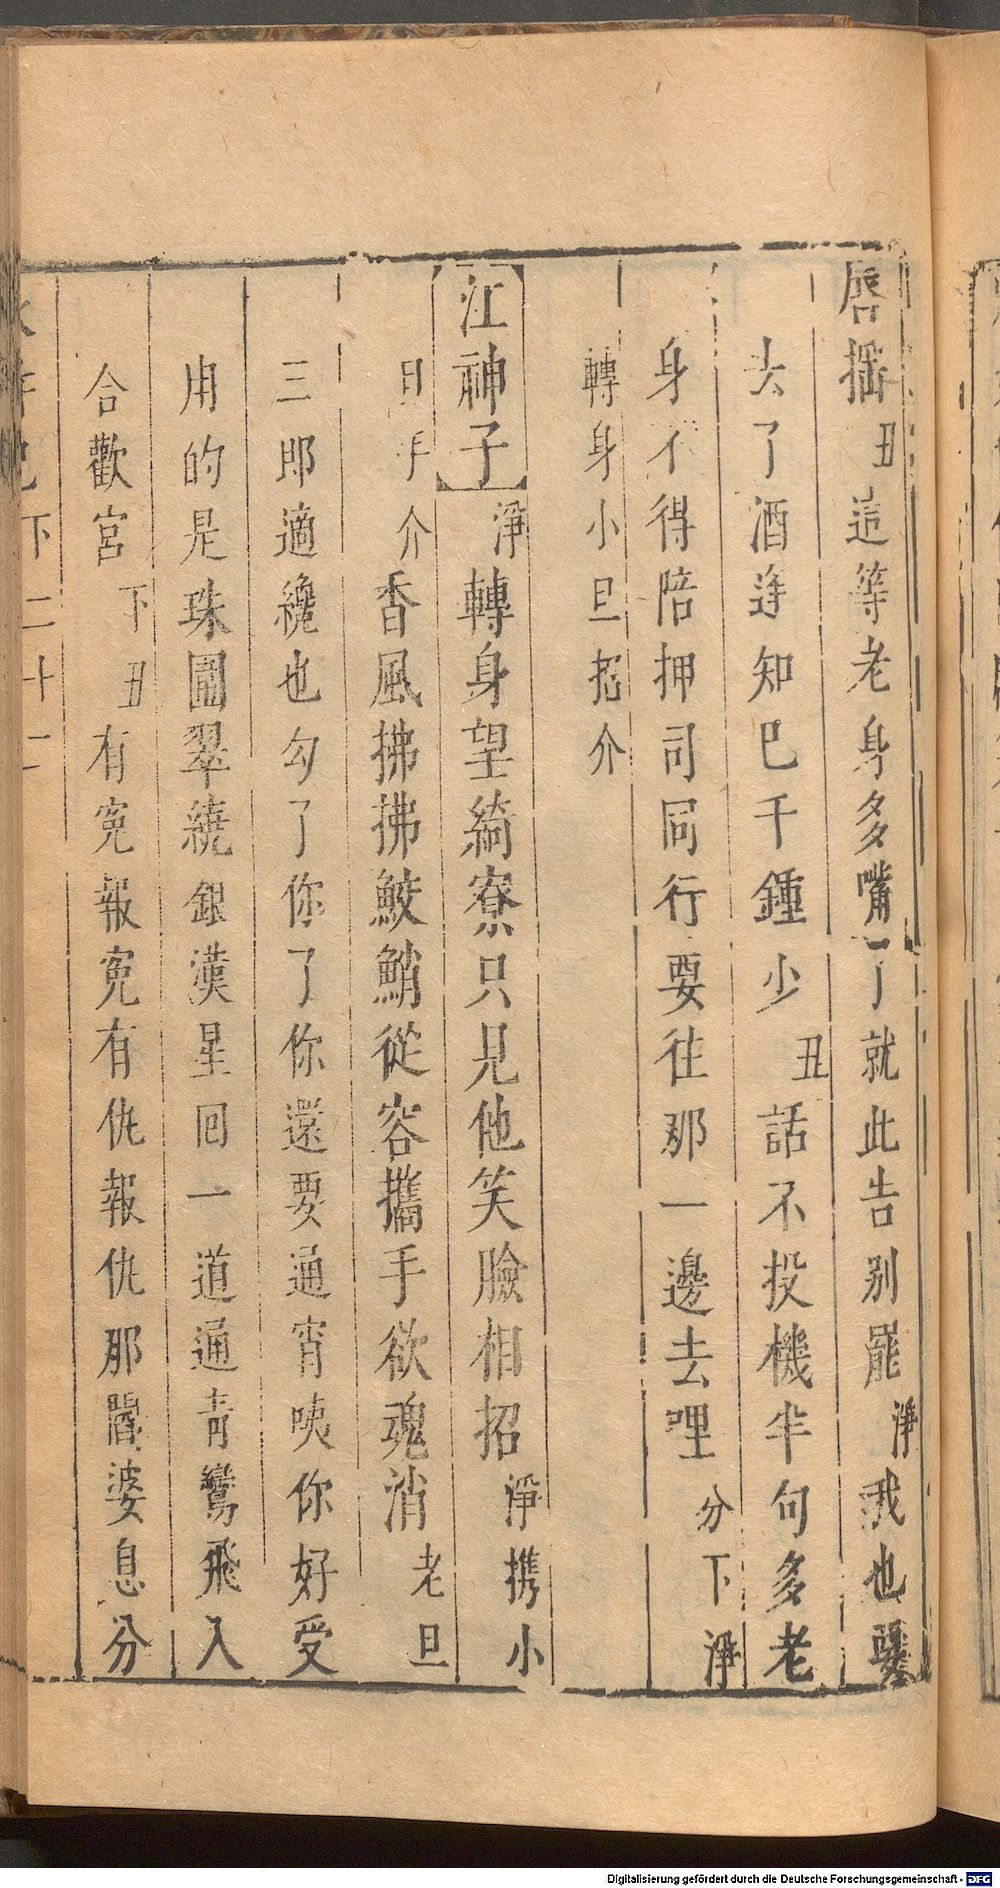 唇摇丑這等老身多嘴了就此告別罷淨我也要
去了酒逢知巳千鍾少丑話不投機半句多老
身不得陪押司同行要往那一邊去哩分下淨
轉身小旦招介
江神子淨轉身望綺寮只見他笑臉相招淨携小
旦手介香風拂拂鮫鮹從容攜手欲魂消老旦
三郎適纔也勾了你了你還要通宵咦你好受
用的是珠圍翠繞銀漢星回一道通青鸞飛入
合歡宮下丑有寃報寃有仇報仇那閻婆息分
下二十二
Digitalisierung gefördert durch die Deutsche Forschungsgemeinschaft - DFG